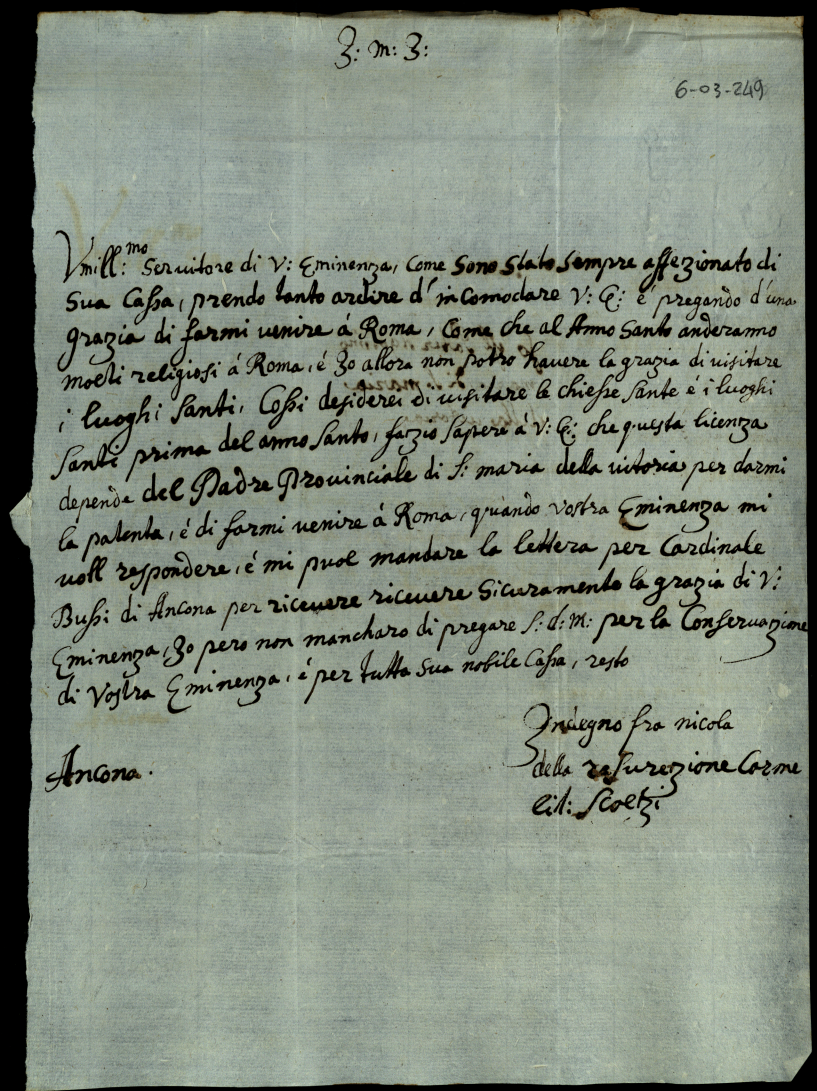 J: M: J:
6-03-249
Vmill:mo Seruitore di V: Eminenza, Come Sono Stato Sempre affezionato di
Sua Cassa, prendo tanto ardire d' incomodare V: E: é pregando d'una
grazia di farmi uenire á Roma, Come che al Anno Santo anderanno
molti religiosi á Roma, é Io allora non potro hauere la grazia di uisitare
i luoghi Santi, Cossi desiderei di uisitare le chiesse Sante é i luoghi
Santi prima del anno Santo, fazio Sapere á V: E: che questa licenza
depende del Padre Prouinciale di S: maria della uitoria per darmi
la patenta, é di farmi uenire á Roma, quando Vostra Eminenza mi
uoll respondere, é mi puol mandare la lettera per Cardinale
Bussi di Ancona per riceuere riceuere Sicuramente la grazia di V:
Eminenza, Io pero non mancharo di pregare S: d: M: per la Conseruazione
di Vostra Eminenza, é per tutta Sua nobile Cassa, resto
Indegno fra nicola
della resurezione Carme
lit: Scoltzi
Ancona.